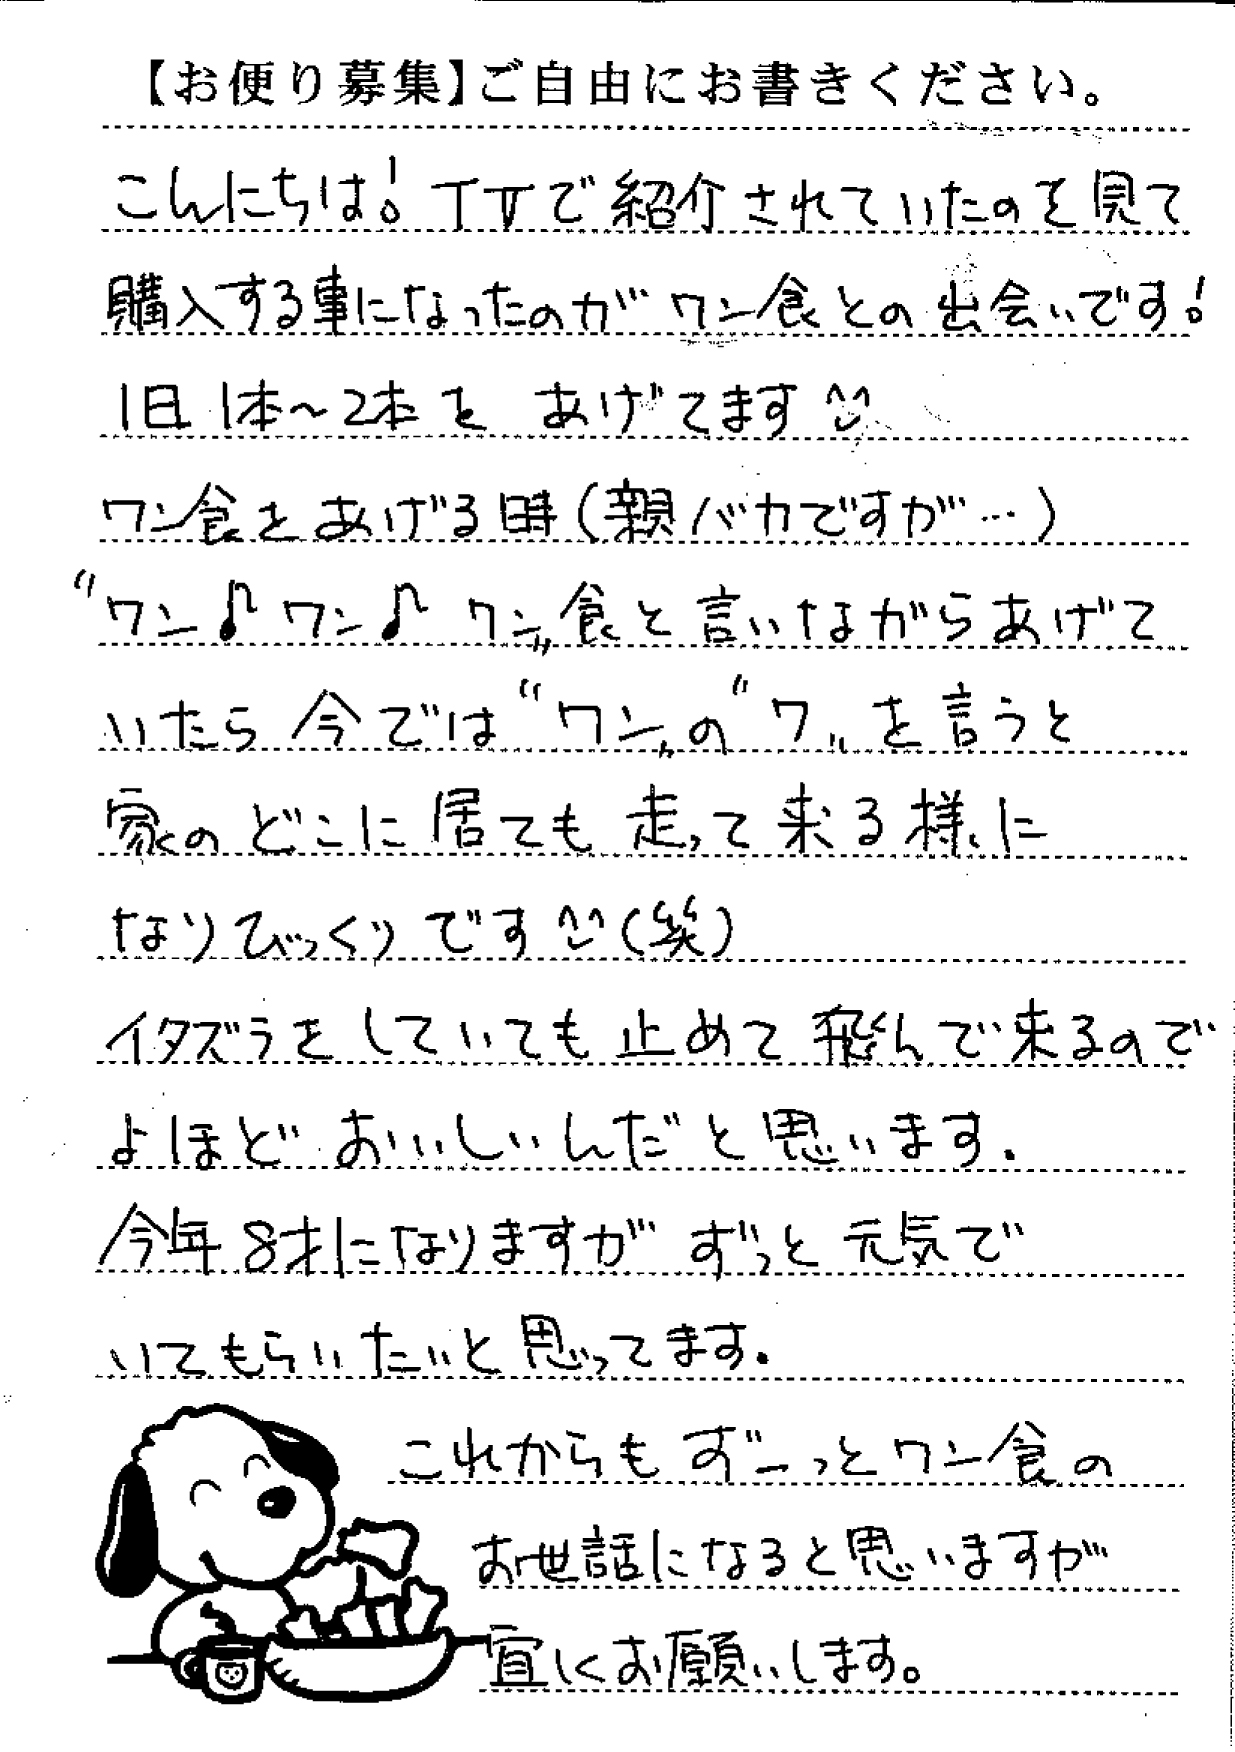 【お便り募集】ご自由にお書きください。
こんにちは! TVで紹介されていたのを見て
購入する事になったのが ワン食との出会いです!
1日 1本〜2本を あげてます^^
ワン食をあげる時(親バカですが…)
“ワン♪ワン♪ ワン”食と言いながらあげて
いたら 今では “ワン”の “ワ” を言うと
家のどこに居ても 走って来る様に
なりびっくりです^^(笑)
イタズラをしていても止めて飛んで来るので
よほど おいしいんだと思います.
今年8才になりますが ずっと元気で
いてもらいたいと思ってます.
これからもずーっとワン食の
お世話になると思いますが
宜しくお願いします。